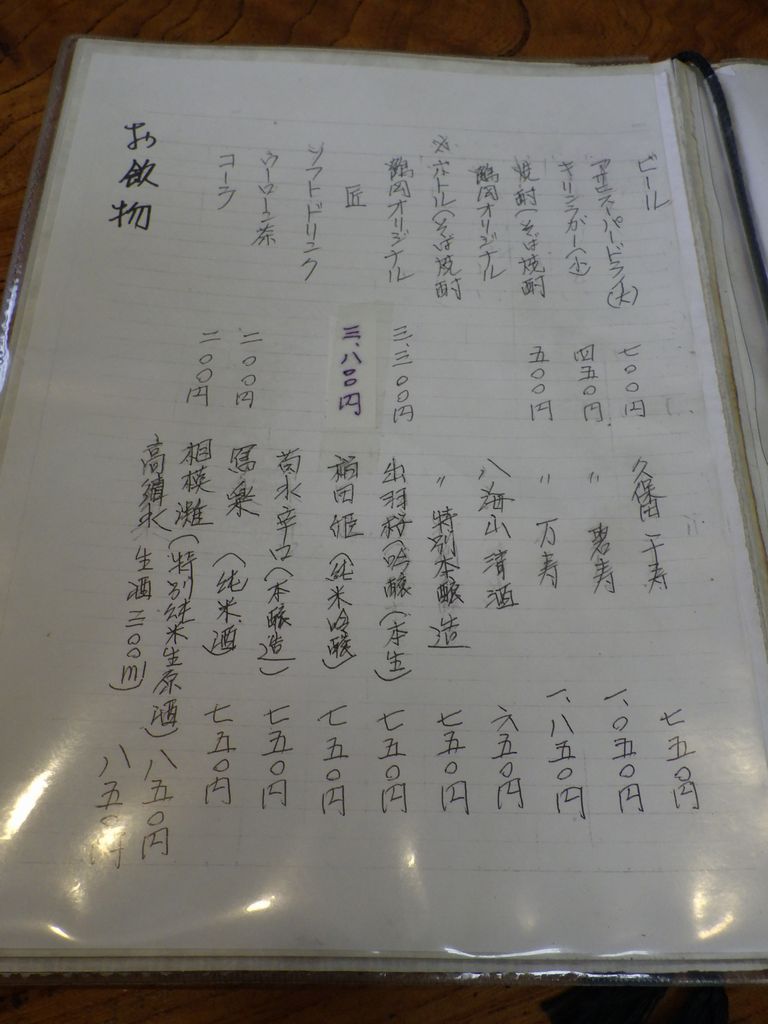 ビール
アサヒスーパードライ(大) 七〇〇円
キリンラガー(小) 四五〇円
焼酎(そば焼酎 五〇〇円
鶴岡オリジナル
ボトル(そば焼酎
鶴岡オリジナル 三、三〇〇円
匠 三、八〇〇円
ソフトドリンク
ウーロン茶 二〇〇円
コーラ 二〇〇円
お飲物
久保田 千寿 七五〇円
〃 碧寿 一、〇五〇円
〃 万寿 一、八五〇円
八海山 清酒 六五〇円
〃 特別本醸造 七五〇円
出羽桜(吟醸(本生) 七五〇円
稲田姫(純米吟醸) 七五〇円
菊水辛口(本醸造) 七五〇円
冩楽(純米酒) 七五〇円
相模灘(特別純米生原酒) 八五〇円
高清水 生酒三〇〇ml) 八五〇円